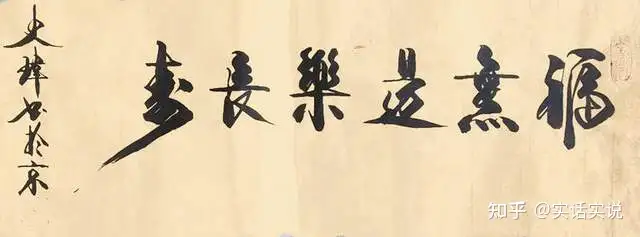 福無邊樂長壽
史瑋書於京
知乎 @实话实说